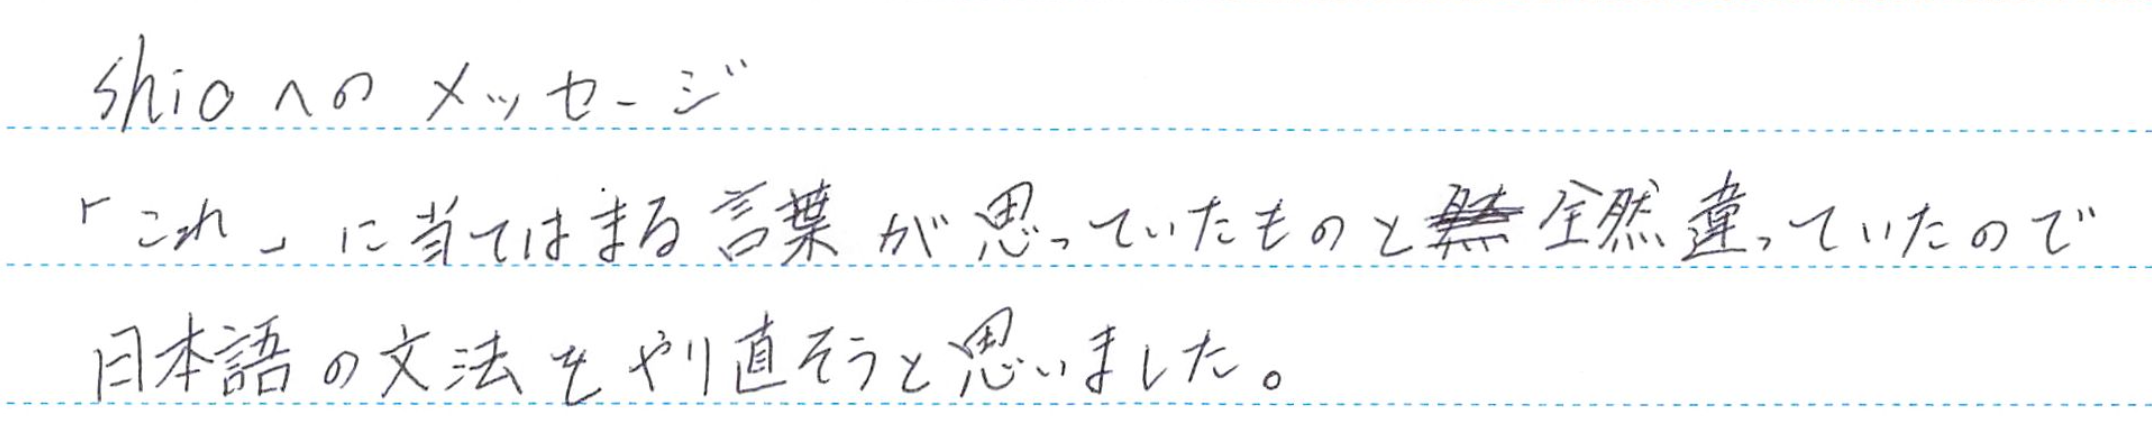 shioへのメッセージ
「これ」に当てはまる言葉が思っていたものと全然違っていたので
日本語の文法をやり直そうと思いました。